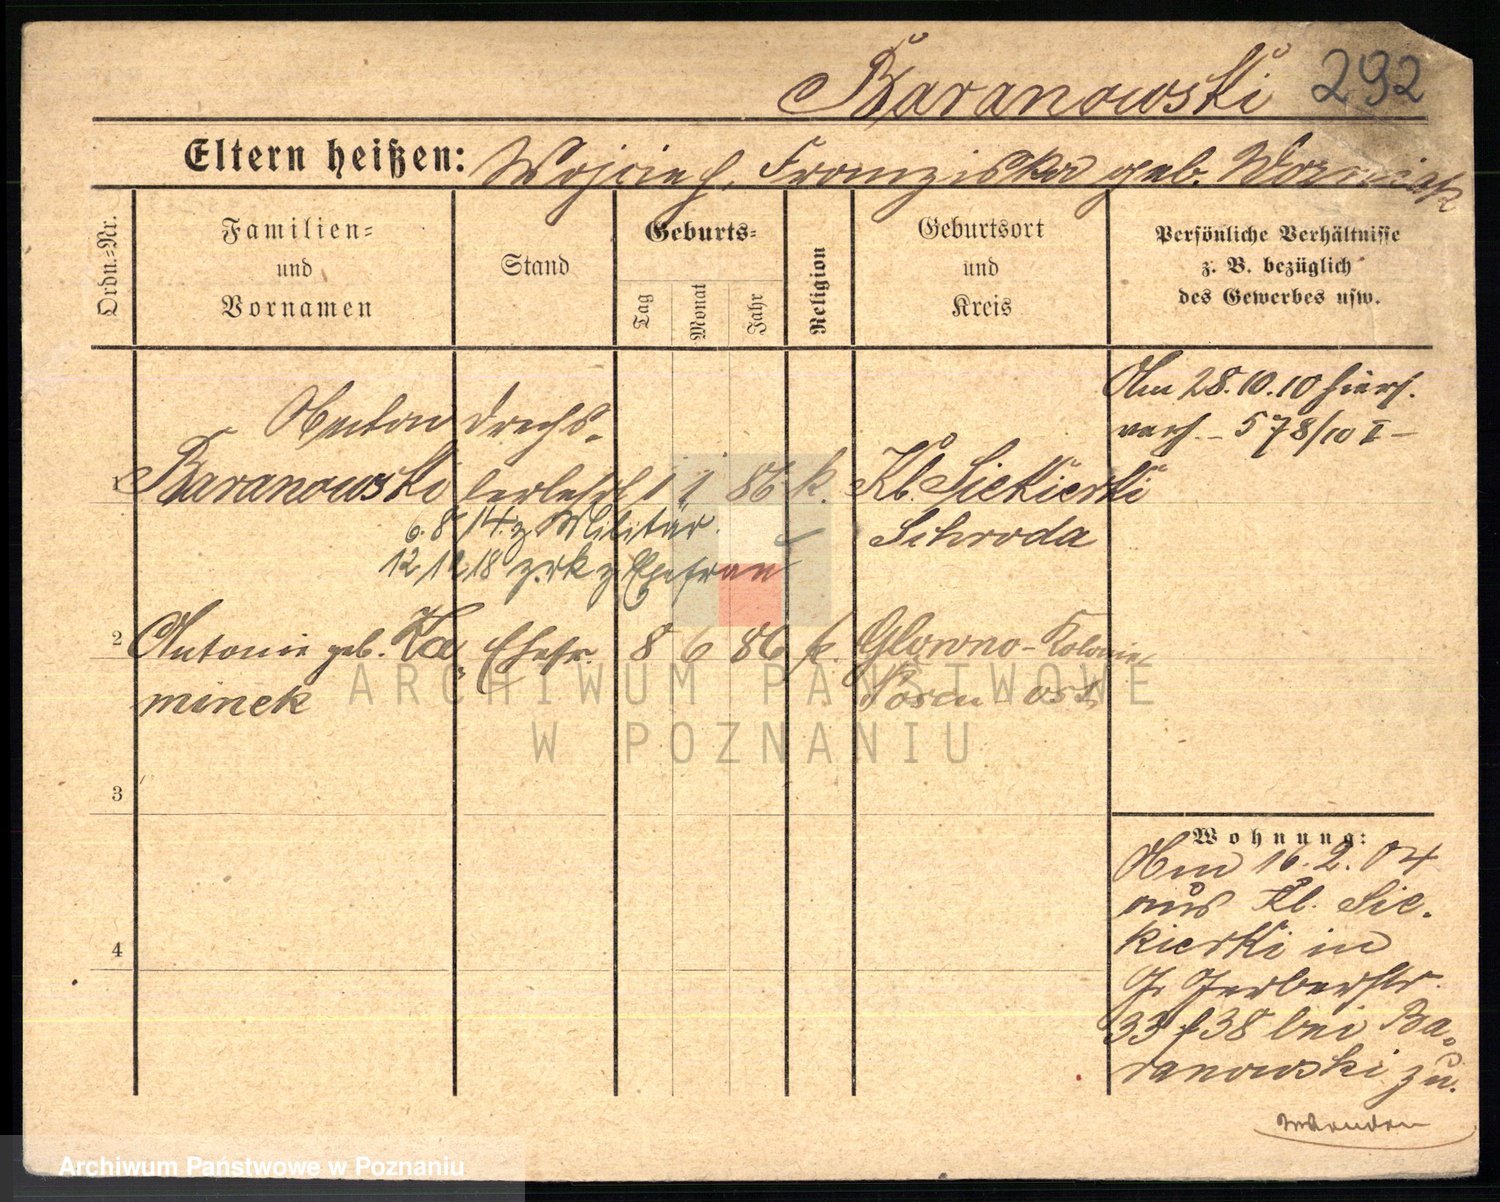 Baranowski 292
Eltern heißen: Wojciech, Franziska geb. Wozniak
Ordn.-Nr.
Familien-
und
Vornamen
Stand
Geburts-
Tag
Monat
Jahr
Religion
Geburtsort
und
Kreis
Persönliche Verhältnisse
z. B. bezüglich
des Gewerbes usw.
Am 28.10.10 hiers.
verh. - 578/10 I -
Anton Drechs-
1 Baranowski lerlehrl 1 1 86 k. Kl. Siekierki
Schroda
6.8.14. z Militär
12.12.18 zrk z Ehefrau
2 Antonie geb. Ka- Ehefr. 8 6 86 k. Glowno-Kolonie
minek Posen ost
3
4
Wohnung:
Am 16.2.04
aus Kl. Sie-
kierki in
J. Gerberstr.
33 f 38 bei Ba-
ranowski zu.
ARCHIWUM PAŃSTWOWE
W POZNANIU
Archiwum Państwowe w Poznaniu